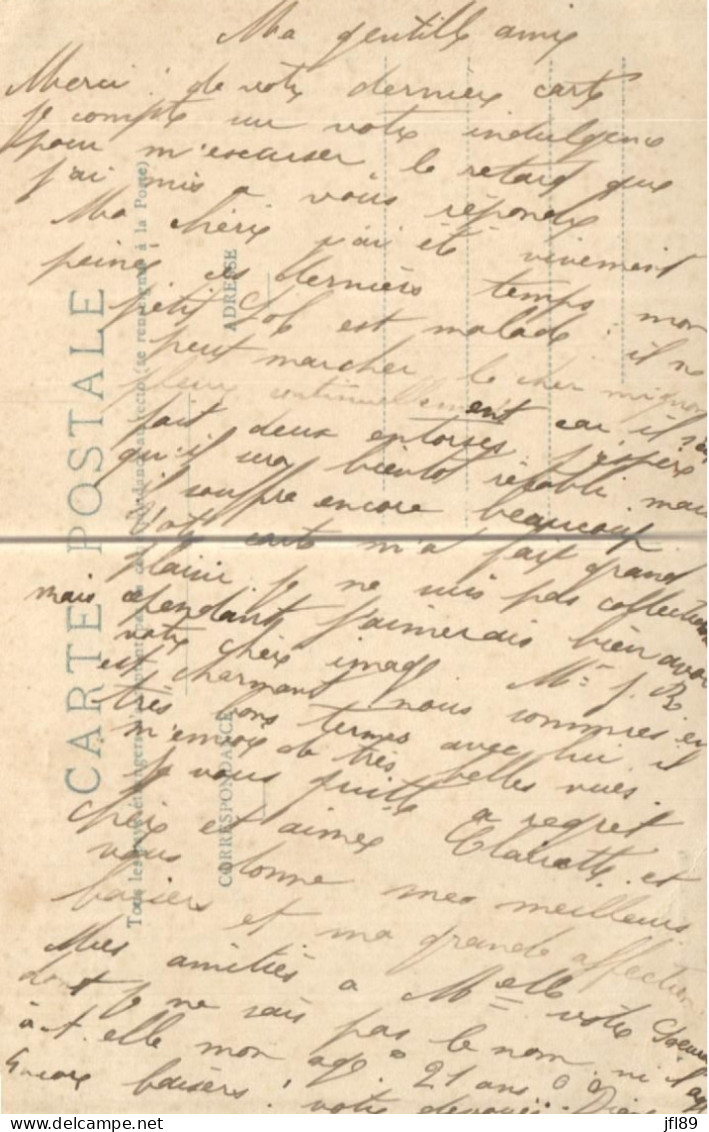 Ma gentille amie
Merci de votre dernière carte
je compte sur votre indulgence
pour m'excuser le retard que
j'ai mis a vous répondre
Ma chérie j'ai été vivement
peinée ces derniers temps mon
petit Lol est malade : il ne
peut marcher le cher mignon
pleure continuellement car il s'est
fait deux entorses j'espère
qu'il sera bientot rétabli mais
il souffre encore beaucoup
Votre carte m'a fait grand
plaisir je ne suis pas collection
mais cependant j'aimerais bien avoir
votre chère image Mr J. R
est charmant nous sommes en
très bons termes avec lui il
m'envoie de très belles vues.
Je vous quitte a regret
chère et aimée Clairette et
vous donne mes meilleurs
baisers et ma grande affection
Mes amitiés a Melle votre soeur
dont je ne sais pas le nom ni l'age
a t. elle mon age 21 ans
Encore baisers votre dévouée
CARTE POSTALE
Tous les pays étrangers n'acceptent pas la correspondance au recto (se renseigner à la Poste)
CORRESPONDANCE
ADRESSE
jfl89